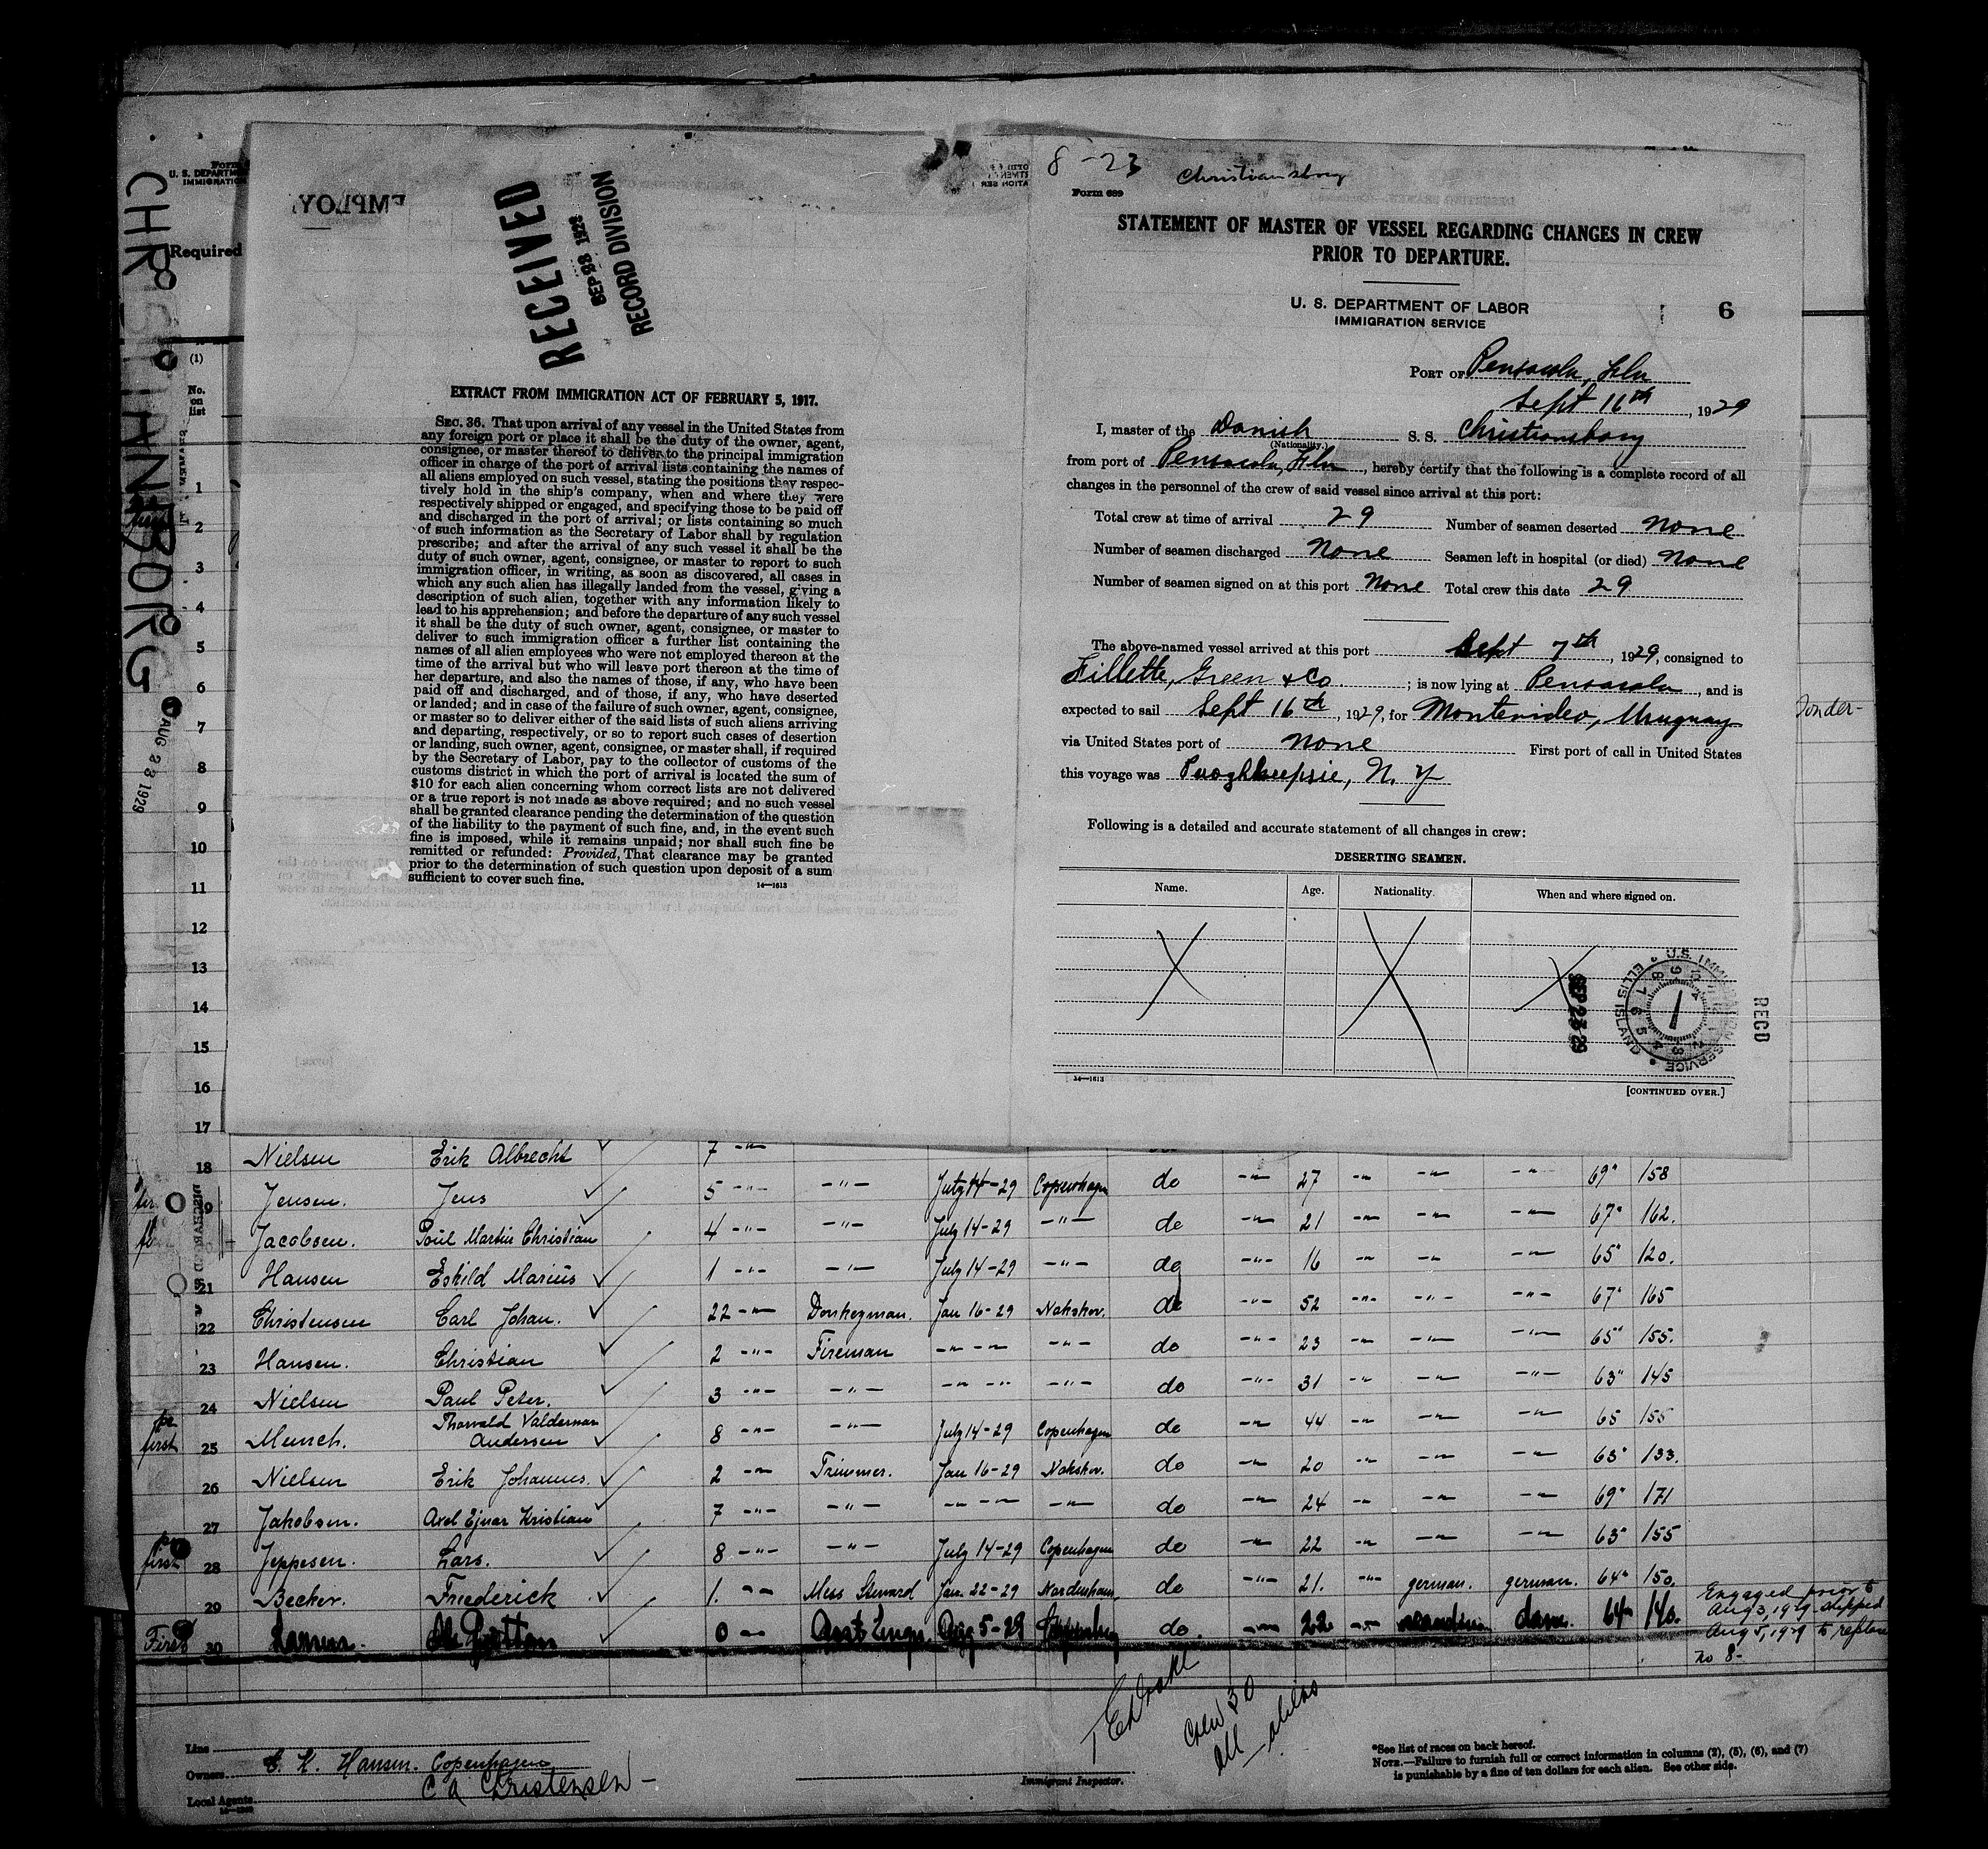 8-23 Christiansborg
Form 689
STATEMENT OF MASTER OF VESSEL REGARDING CHANGES IN CREW
PRIOR TO DEPARTURE.
U. S. DEPARTMENT OF LABOR
IMMIGRATION SERVICE
6
PORT OF Pensacola, Fla
Sept 16th, 1929
I, master of the Danish S. S. Christiansborg
(Nationality.)
from port of Pensacola, Fla, hereby certify that the following is a complete record of all
changes in the personnel of the crew of said vessel since arrival at this port:
Total crew at time of arrival 29 Number of seamen deserted none
Number of seamen discharged None Seamen left in hospital (or died) None
Number of seamen signed on at this port None Total crew this date 29
The above-named vessel arrived at this port Sept 7th, 1929, consigned to
Fillette, Green & Co. ; is now lying at Pensacola, and is
expected to sail Sept 16th, 1929, for Montevideo, Uruguay
via United States port of none First port of call in United States
this voyage was Puoghkeepsie, N. Y
Following is a detailed and accurate statement of all changes in crew:
DESERTING SEAMEN.
Name. Age. Nationality. When and where signed on.
X X X
SEP 23 29
U.S. IMMIGRATION SERVICE ELLIS ISLAND
RECD
14—1613
[CONTINUED OVER.]
RECEIVED
SEP 23 1929
RECORD DIVISION
EMPLOY
EXTRACT FROM IMMIGRATION ACT OF FEBRUARY 5, 1917.
SEC. 36. That upon arrival of any vessel in the United States from
any foreign port or place it shall be the duty of the owner, agent,
consignee, or master thereof to deliver to the principal immigration
officer in charge of the port of arrival lists containing the names of
all aliens employed on such vessel, stating the positions they respec-
tively hold in the ship's company, when and where they were
respectively shipped or engaged, and specifying those to be paid off
and discharged in the port of arrival; or lists containing so much
of such information as the Secretary of Labor shall by regulation
prescribe; and after the arrival of any such vessel it shall be the
duty of such owner, agent, consignee, or master to report to such
immigration officer, in writing, as soon as discovered, all cases in
which any such alien has illegally landed from the vessel, giving a
description of such alien, together with any information likely to
lead to his apprehension; and before the departure of any such vessel
it shall be the duty of such owner, agent, consignee, or master to
deliver to such immigration officer a further list containing the
names of all alien employees who were not employed thereon at the
time of the arrival but who will leave port thereon at the time of
her departure, and also the names of those, if any, who have been
paid off and discharged, and of those, if any, who have deserted
or landed; and in case of the failure of such owner, agent, consignee,
or master so to deliver either of the said lists of such aliens arriving
and departing, respectively, or so to report such cases of desertion
or landing, such owner, agent, consignee, or master shall, if required
by the Secretary of Labor, pay to the collector of customs of the
customs district in which the port of arrival is located the sum of
$10 for each alien concerning whom correct lists are not delivered
or a true report is not made as above required; and no such vessel
shall be granted clearance pending the determination of the question
of the liability to the payment of such fine, and, in the event such
fine is imposed, while it remains unpaid; nor shall such fine be
remitted or refunded: Provided, That clearance may be granted
prior to the determination of such question upon deposit of a sum
sufficient to cover such fine.
14—1613
CHRISTIANSBORG
AUG 23 1929
Form
U. S. DEPARTME
IMMIGRATION
Required
(1)
No.
on
list
1
2
3
4
5
6
7
8
9
10
11
12
13
14
15
16
17
18 Nielsen Erik Albrecht 7 -"-
19 Jensen. Jens 5 -"- -"- July 14-29 Copenhagen do -"- 27 -"- -"- -"- 69" 158
Jacobsen. Poul Martin Christian 4 -"- -"- July 14-29 -"- do -"- 21 -"- -"- -"- 67" 162.
21 Hansen Eskild Marius 1 -"- -"- July 14-29 -"- do -"- 16 -"- -"- -"- 65" 120.
22 Christensen Carl Johan. 22 -"- Donkeyman. Jan 16-29 Nakskov. do -"- 52 -"- -"- -"- 67" 165
23 Hansen. Christian 2 -"- Fireman -"- -"- -"- do -"- 23 -"- -"- -"- 65" 155.
24 Nielsen Paul Peter. 3 -"- -"- -"- -"- -"- do -"- 31 -"- -"- -"- 63" 145
first 25 Munch. Thorvald Valdemar Andersen 8 -"- -"- July 14-29 Copenhagen do -"- 44 -"- -"- -"- 65 155
26 Nielsen Erik Johannes. 2 -"- Trimmer. Jan 16-29 Nakskov. do -"- 20 -"- -"- -"- 63" 133.
27 Jakobsen. Axel Ejnar Kristian 7 -"- -"- -"- -"- -"- do -"- 24 -"- -"- -"- 69" 171
first 28 Jeppesen. Lars. 8 -"- -"- July 14-29 Copenhagen do -"- 22 -"- 63" 155
29 Becker. Friederick 1. -"- Mess Steward Jan. 22-29 Nordenham. do -"- 21. -"- german. german. 64" 150.
First 30 0 -"- Aug 5-29 do. -"- 22 -"- dane. 64" 140.
Engaged prior to
Aug 3, 1929 shipped
Aug 5, 1929 to replace
no 8-
Crew 30
All aliens
Line
Owners C. K. Hansen. Copenhagen
Local Agents C A Christensen
Immigrant Inspector.
*See list of races on back hereof.
NOTE.—Failure to furnish full or correct information in columns (2), (5), (6), and (7)
is punishable by a fine of ten dollars for each alien. See other side.